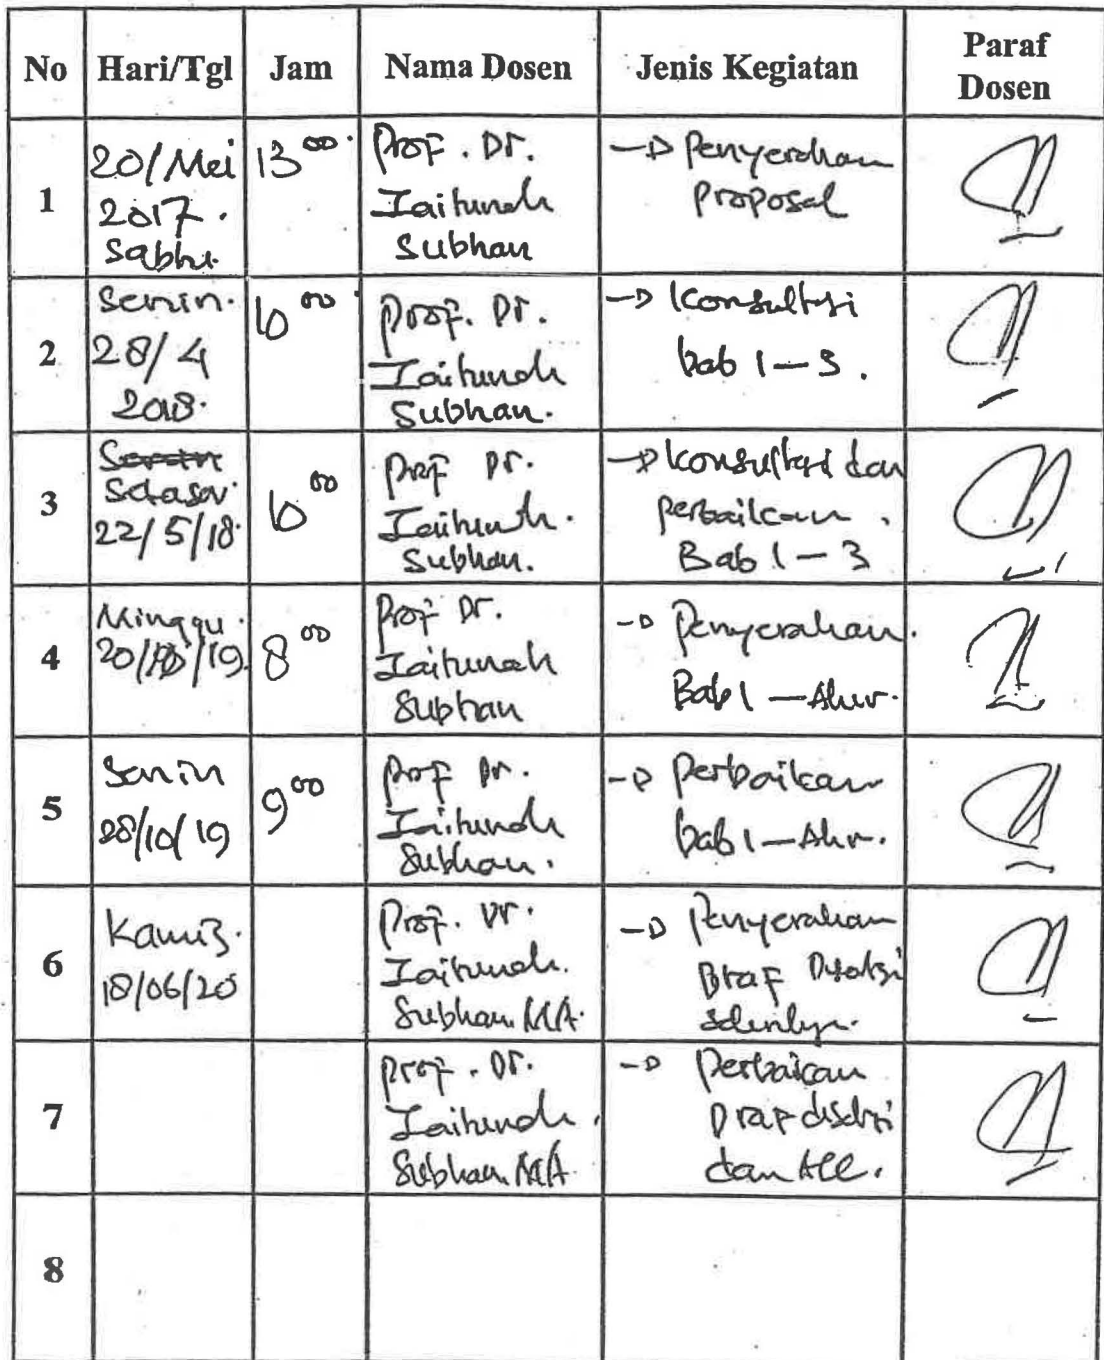 No Hari/Tgl Jam Nama Dosen Jenis Kegiatan Paraf Dosen
1
20/Mei
2017.
Sabtu.
13 00.
Prof. Dr.
Zaitunah
Subhan
→ Penyerahan
Proposal
2
Senin.
28/4
2018.
10 00.
Prof. Dr.
Zaitunah
Subhan.
→ Konsultasi
bab 1 – 3.
3
Senin
Selasa.
22/5/18.
10 00
Prof Dr.
Zaitunah.
Subhan.
→ Konsultasi dan
perbaikan.
Bab 1 – 3
4
Minggu.
20/10/19.
8 00
Prof Dr.
Zaitunah
Subhan
→ Penyerahan.
Bab 1 – Ahir.
5
Senin
28/10/19
9 00
Prof Dr.
Zaitunah
Subhan.
→ Perbaikan
bab 1 – Ahir.
6
Kamis.
18/06/20
Prof. Dr.
Zaitunah.
Subhan. MA.
→ Penyerahan
Draf Disertasi
7
Prof. Dr.
Zaitunah.
Subhan. MA.
→ Perbaikan
Draf disertasi
dan ACC.
8